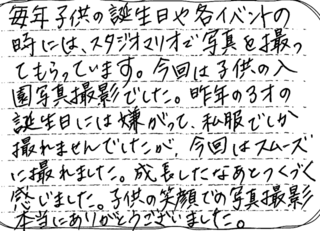 毎年子供の誕生日や各イベントの
時には、スタジオマリオで写真を撮っ
てもらっています。今回は子供の入
園写真撮影でした。昨年の3才の
誕生日には嫌がって、私服でしか
撮れませんでしたが、今回はスムーズ
に撮れました。成長したなあとつくづく
感じました。子供の笑顔での写真撮影
本当にありがとうございました。